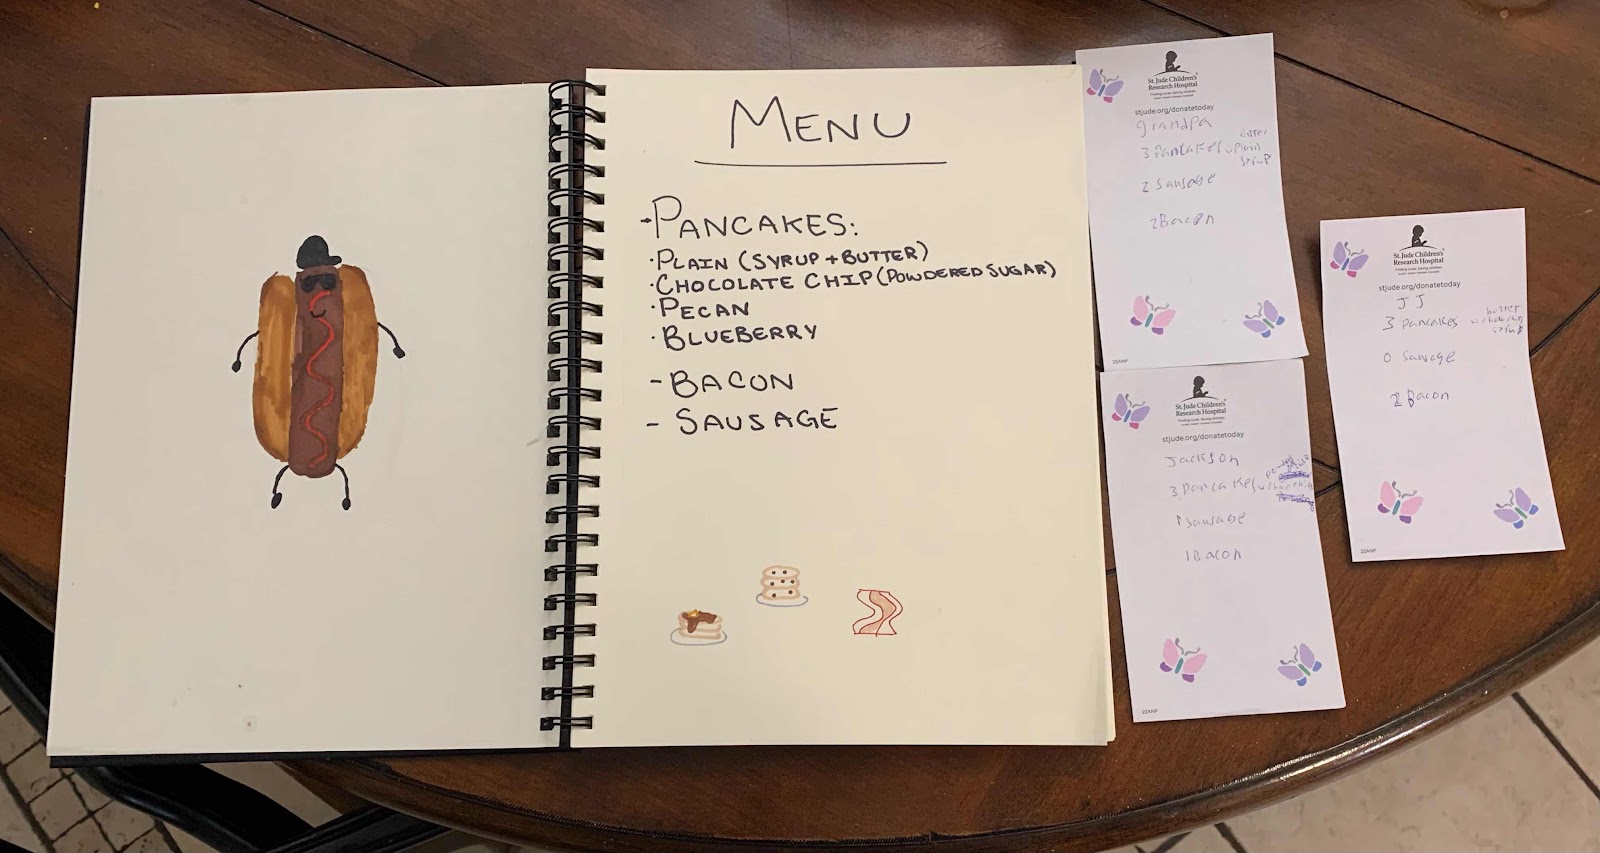 MENU
- PANCAKES:
· PLAIN (SYRUP + BUTTER)
· CHOCOLATE CHIP (POWDERED SUGAR)
· PECAN
· BLUEBERRY
- BACON
- SAUSAGE
St. Jude Children's
Research Hospital
stjude.org/donatetoday
grandpa
butter
3 Pancakes w plain
syrup
2 Sausage
2 Bacon
22ANP
St. Jude Children's
Research Hospital
stjude.org/donatetoday
Jackson
3 pancakes w
1 sausage
1 Bacon
22ANP
St. Jude Children's
Research Hospital
stjude.org/donatetoday
JJ
butter
3 pancakes
syrup
0 sausage
Bacon
22ANP